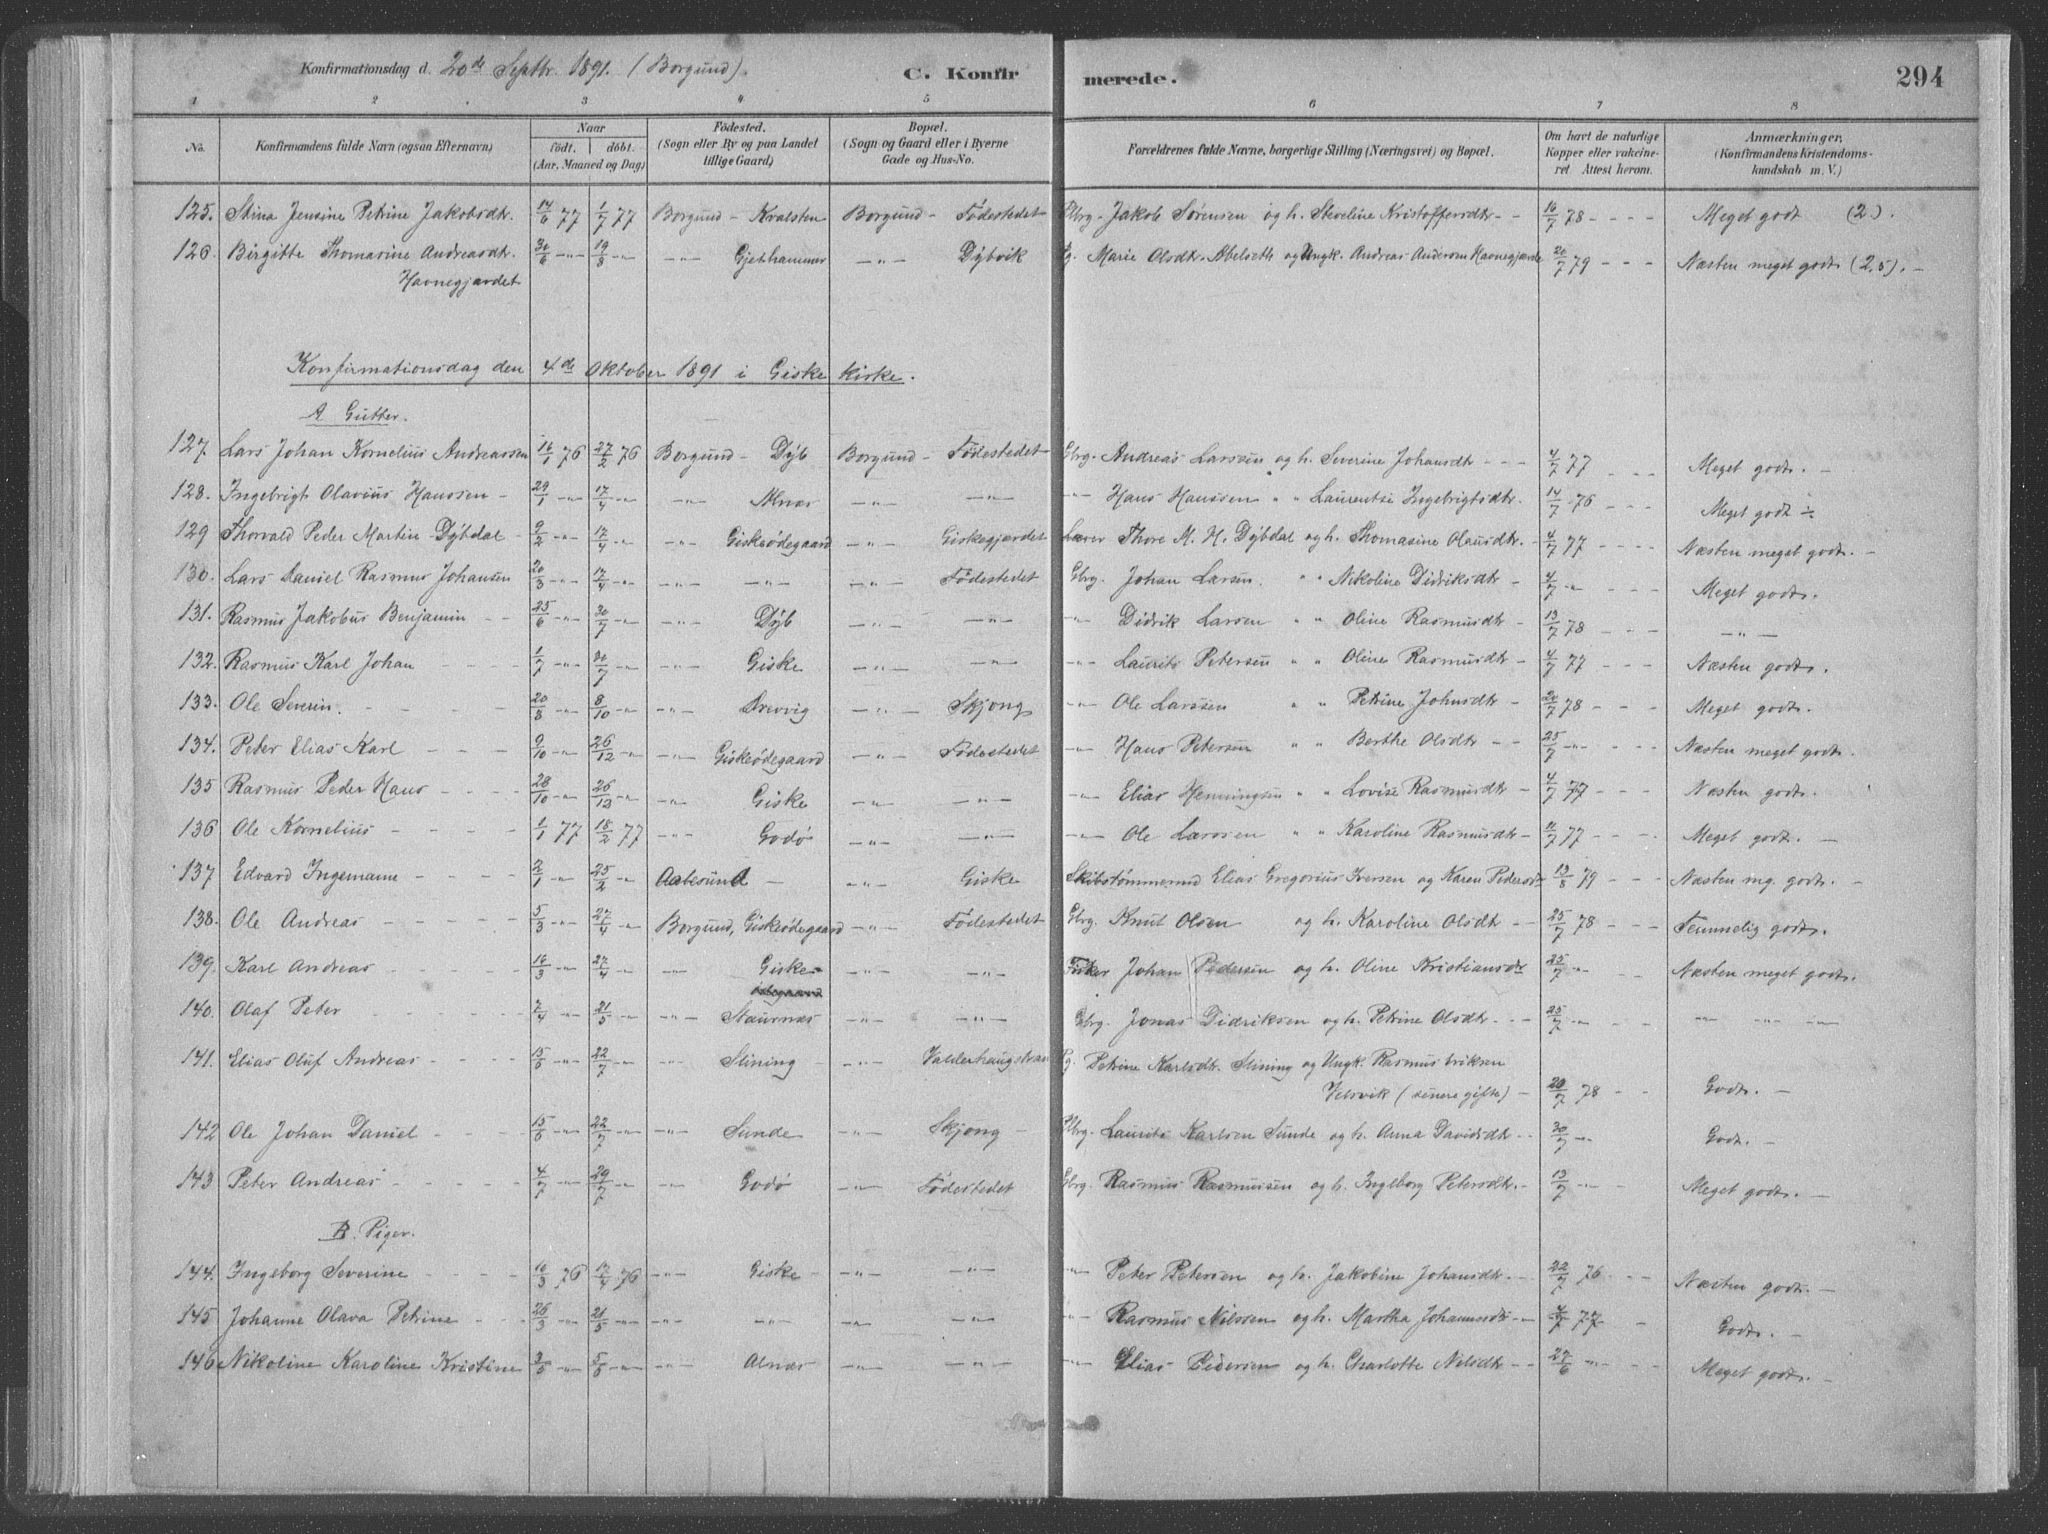 Konfirmationsdag d. 20de Septbr. 1891. (Borgund). C. Konfirmerede. 294
1 2 3 4 5 6 7 8
No. Konfirmandens fulde Navn (ogsaa Efternavn) Naar født. døbt. (Aar, Maaned og Dag) Fødested. (Sogn eller By og paa Landet tillige Gaard) Bopæl. (Sogn og Gaard eller i Byerne Gade og Hus-No. Forældrenes fulde Navne, borgerlige Stilling (Næringsvei) og Bopæl. Om havt de naturlige Kopper eller vakcineret Attest herom. Anmærkninger, (Konfirmandens Kristendomskundskab m. V.)
125. Stina Jensine Petrine Jakobsdtr. 14/6 77 1/7 77 Borgund - Kvalsten Borgund - Fødestedet Gbrg. Jakob Sørensen og h. Steveline Kristoffersdtr - - 16/7 78 - - - Meget godt (2).
126. Birgitte Thomasine Andreasdtr. 30/6 -"- 19/8 -"- -"- Gjethammer -"- Dybvik Pg. Marie Olsdtr. Abelseth og Ungk. Andreas Andersen Havnegjærde 20/7 79 - - - Næsten meget godt (2,5). -
Havnegjærdet
Konfirmationsdag den 4de Oktober 1891 i Giske Kirke.
A Gutter.
127. Lars Johan Kornelius Andreassen 16/1 76 27/2 76 Borgund - Dyb Borgund - Fødestedet Gbrg. Andreas Larsen og h. Severine Johansdtr - - - 4/7 77 - - - Meget godt. -
128. Ingebrigt Olavius Hanssen - 29/1 -"- 17/4 -"- -"- Alnæs -"- -"- -"- Hans Hanssen " " Laurentse Ingebrigtsdtr. 14/7 76 - - - Meget godt ÷
129 Thorvald Peder Martin Dybdal - 9/2 -"- 17/4 -"- -"- Giskeødegaard -"- Giskegjærdet Lærer Thore M. H. Dybdal og h. Thomasine Olausdtr. - 4/7 77 - - - - Næsten meget godt. -
130. Lars Daniel Rasmus Johansen 20/3 -"- 17/4 -"- -"- -"- -"- Fødestedet Gbrg. Johan Larsen. " " Nikoline Didriksdtr - 4/7 -"- - - - Meget godt.
131. Rasmus Jakobus Benjamin - - 25/6 -"- 30/7 -"- -"- Dyb -"- -"- -"- Didrik Larsen " " Oline Rasmusdtr - 13/7 78 - - - -"-
132. Rasmus Karl Johan - - - - 1/7 -"- 30/7 -"- -"- Giske -"- -"- -"- Laurits Petersen " " Oline Rasmusdtr - 4/7 77 - - - Næsten godt.
133. Ole Severin. - - - - 20/8 -"- 8/10 -"- -"- Drevvig -"- Skjong -"- Ole Larssen " " Petrine Johnsdtr - 20/7 78 - - - Meget godt.
134. Peter Elias Karl - - - 9/10 -"- 26/12 -"- -"- Giskeødegaard -"- Fødestedet -"- Hans Petersen " " Berthe Olsdtr - - 25/7 -"- - - - Næsten meget godt.
135 Rasmus Peder Hans - - - 28/10 -"- 26/12 -"- -"- Giske -"- -"- -"- Elias Henningsen " " Lovise Rasmusdtr - 4/7 77 - - - Næsten godt.
136 Ole Kornelius - - - - 1/1 77 18/2 77 -"- Godø -"- -"- -"- Ole Larssen " " Karoline Rasmusdtr - 11/7 77 - - - Meget godt. -
137 Edvard Ingemann - - - 2/1 -"- 25/2 -"- Aalesund - -"- Giske Skibstømmermd Elias Gregorius Iversen og Karen Pedersdtr 13/8 79 - - - Næsten mg. godt. -
138. Ole Andreas - - - - 5/3 -"- 27/4 -"- Borgund, Giskeødegaard -"- Fødestedet Gbrg. Knut Olsen og h. Karoline Olsdtr - 25/7 78 - - - Temmelig godt.
139. Karl Andreas - - - - 16/3 -"- 27/4 -"- -"- Giske- -"- -"- Fisker Johan Pedersen og h. Oline Kristiansdtr 25/7 -"- - - - Næsten meget godt.
140. Olaf Peter - - - - 7/4 -"- 21/5 -"- -"- Staurnæs -"- -"- Gbrg. Jonas Didriksen og h. Petrine Olsdtr. - - 25/7 -"- - - - -"- -"- -"-
141. Elias Oluf Andreas - - - 15/5 -"- 22/7 -"- -"- Slining - -"- Valderhaugstran Pg. Petrine Karlsdtr. Slining og Ungk. Rasmus Eriksen
(senere gifte) - 20/7 78 - - Godt. -
142 Ole Johan Daniel - - - 15/6 -"- 22/7 -"- -"- Sunde -"- Skjong - Gbrg. Laurits Karlsen Sunde og h. Anna Davidsdtr - - 30/7 -"- Godt. -
143 Peter Andreas - - - - 4/7 -"- 29/7 -"- -"- Godø -"- Fødestedet Gbrg. Rasmus Rasmussen og h. Ingeborg Petersdtr. - 13/7 -"- - - Meget godt. -
B. Piger.
144. Ingeborg Severine - - - 10/3 76 17/4 76 -"- Giske - -"- -"- -"- Peter Petersen og h. Jakobine Johansdtr. - - 22/7 76 - - Næsten godt. -
145 Johanne Olava Petrine - - 26/3 -"- 21/5 -"- -"- -"- -"- -"- -"- Rasmus Nilssen og h. Martha Johannesdtr - 4/7 77 - Godt. -
146 Nikoline Karoline Kristine 3/5 -"- 5/6 -"- -"- Alnæs -"- -"- -"- Elias Pedersen og h. Charlotte Nilsdtr - - 27/6 -"- - - Meget godt. -